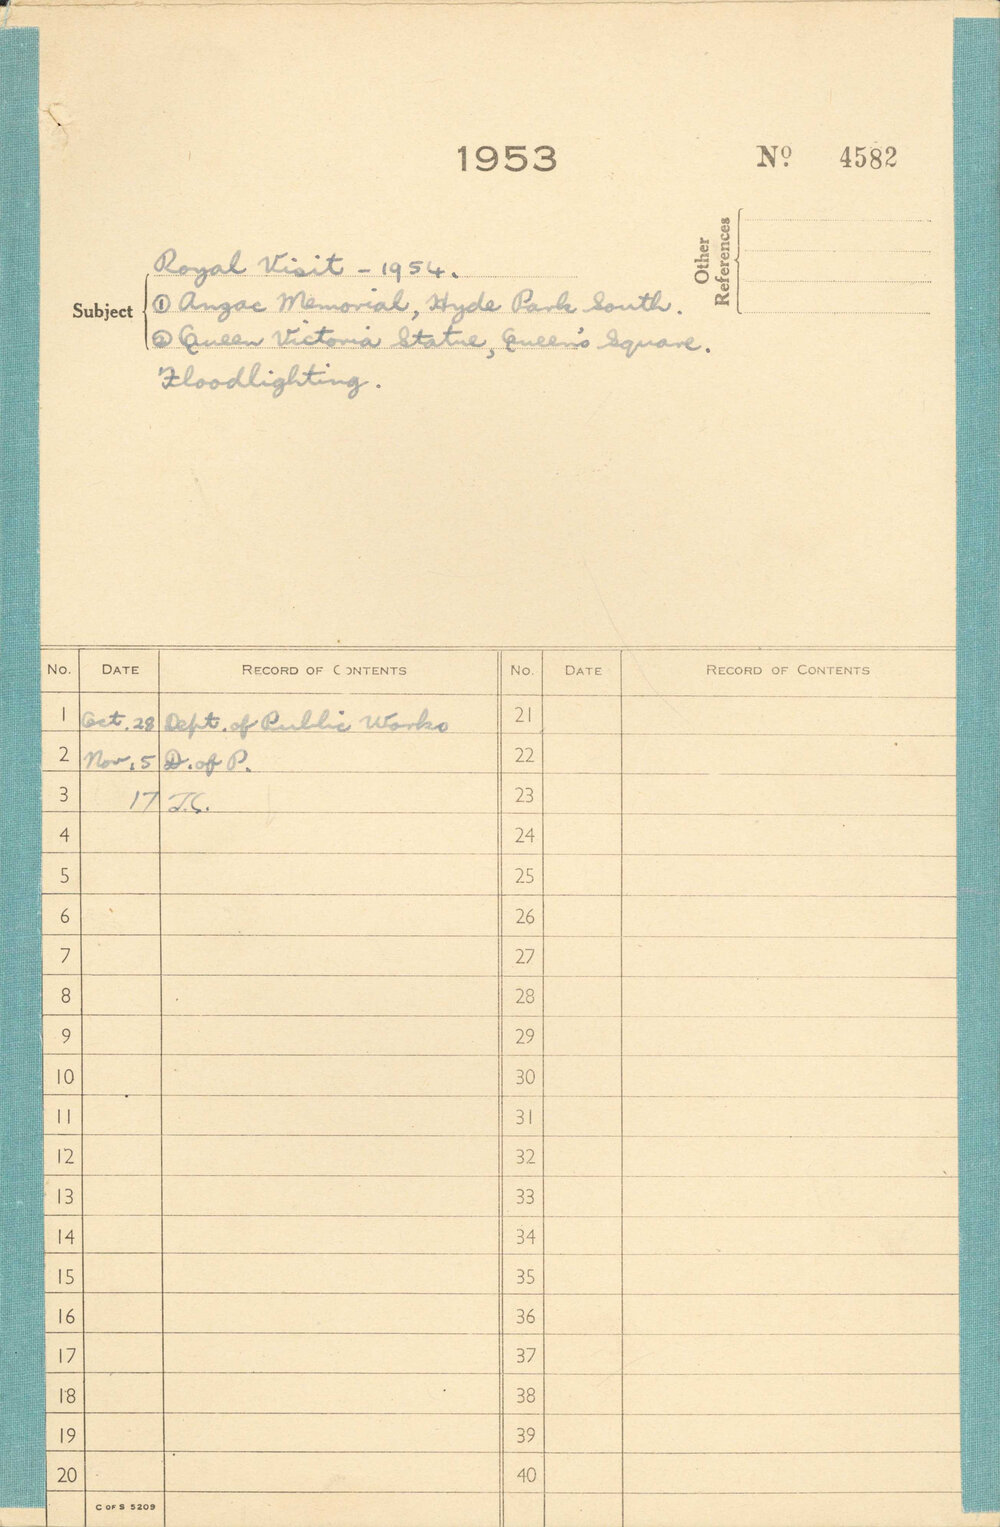 1953
Nº 4582
Other References
Royal Visit - 1954.
Subject
① Anzac Memorial, Hyde Park South.
② Queen Victoria Statue, Queen's Square.
Floodlighting.
No. DATE RECORD OF CONTENTS No. DATE RECORD OF CONTENTS
1 Oct. 28 Dept. of Public Works 21
2 Nov. 5 D. of P. 22
3 17 23
4 24
5 25
6 26
7 27
8 28
9 29
10 30
11 31
12 32
13 33
14 34
15 35
16 36
17 37
18 38
19 39
20 40
C OF S 5209